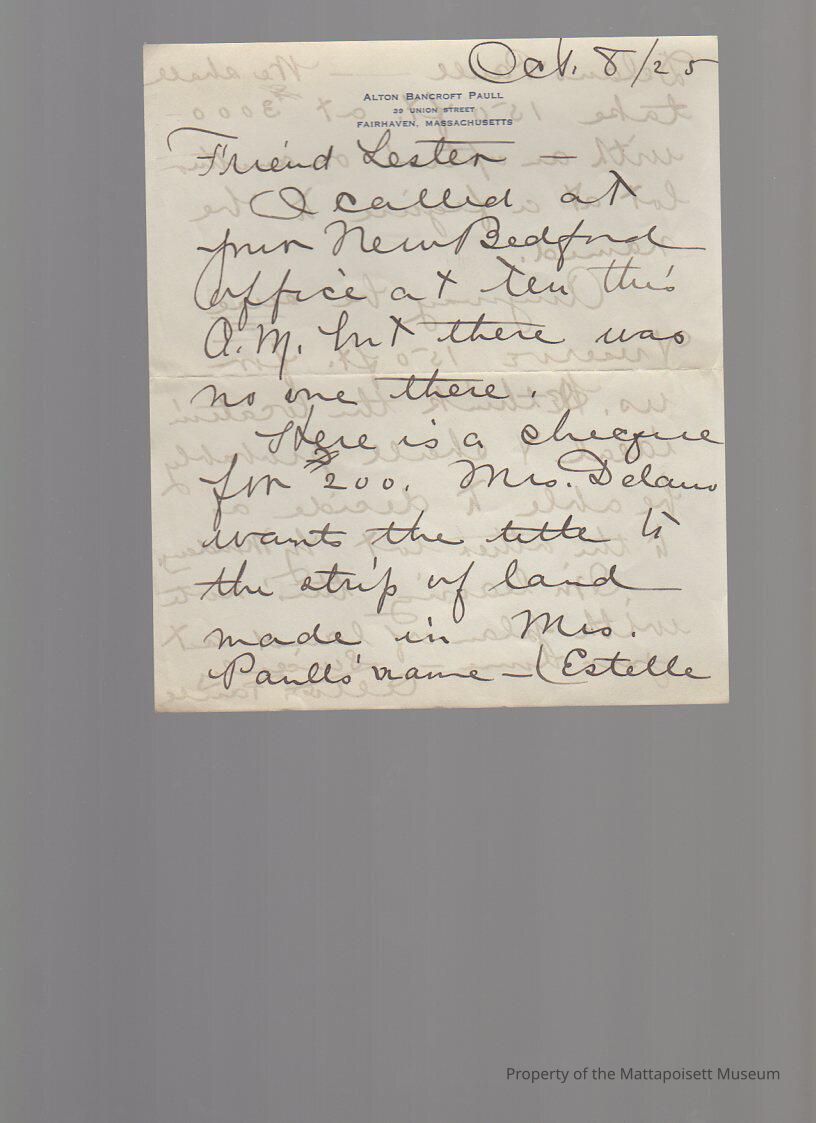 Oct. 8/25
ALTON BANCROFT PAULL
39 UNION STREET
FAIRHAVEN, MASSACHUSETTS
Friend Lester —
I called at
your New Bedford
office at ten this
A.M. but there was
no one there.
Here is a cheque
for $200. Mrs. Delano
wants the title to
the strip of land
made in Mrs.
Paulls' name — (Estelle
Property of the Mattapoisett Museum